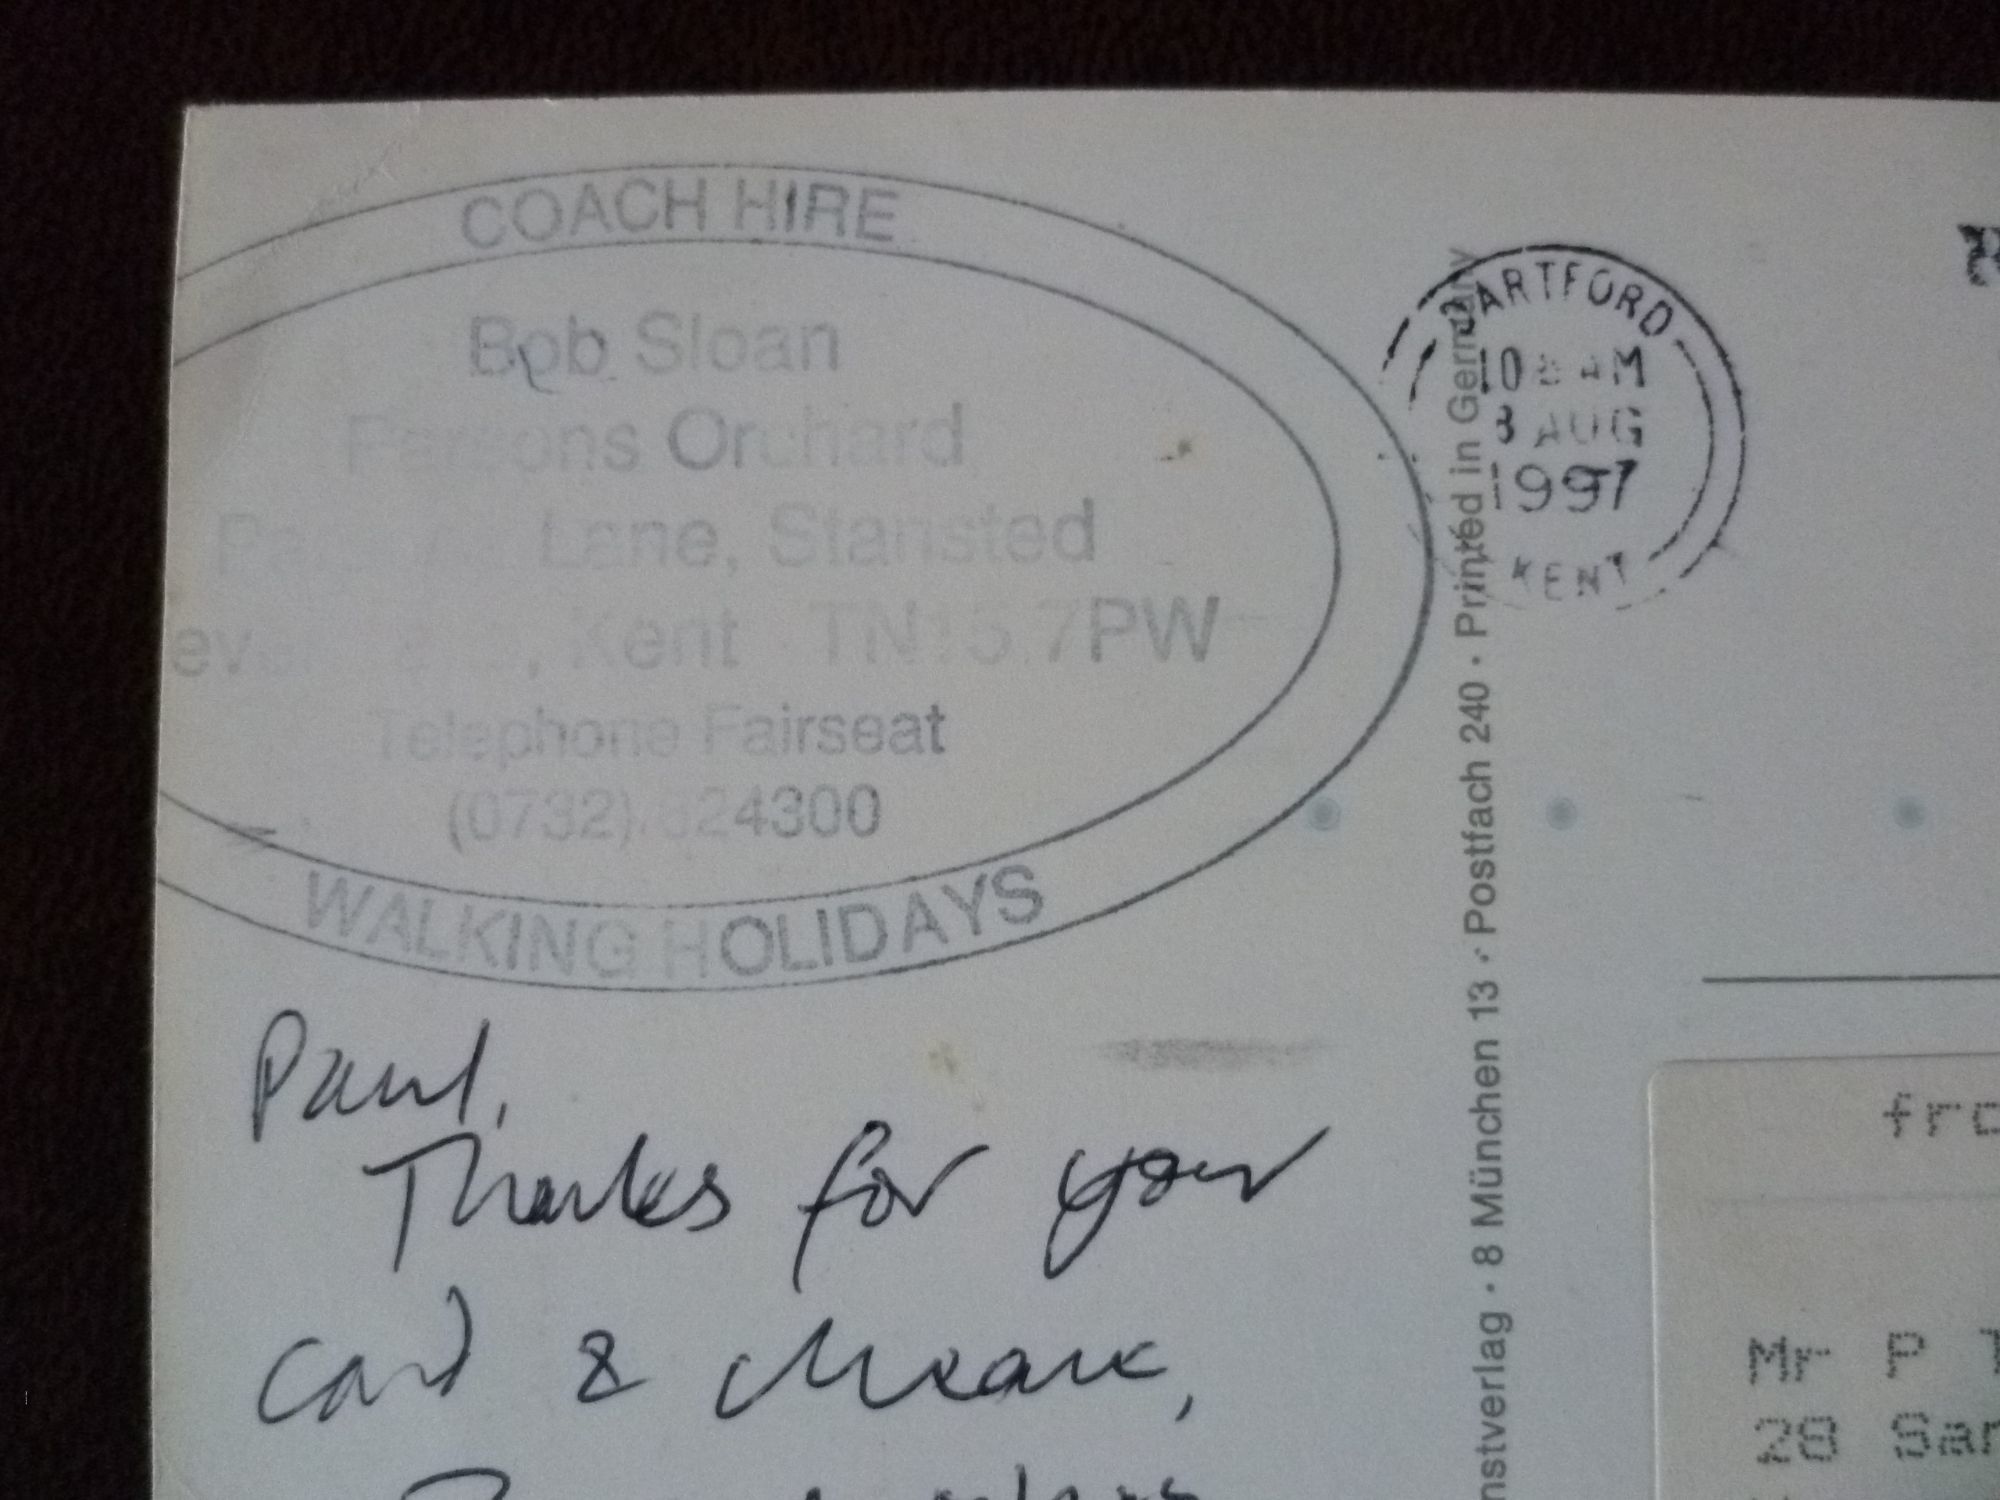 COACH HIRE
Bob Sloan
Parsons Orchard
Lane, Stansted
Kent TN15 7PW
Telephone Fairseat
(0732) 824300
WALKING HOLIDAYS
DARTFORD
AM
AUG
1997
KENT
nstverlag · 8 München 13 · Postfach 240 · Printed in Germany
Paul,
Thanks for your
card & cheque,
Mr P
20